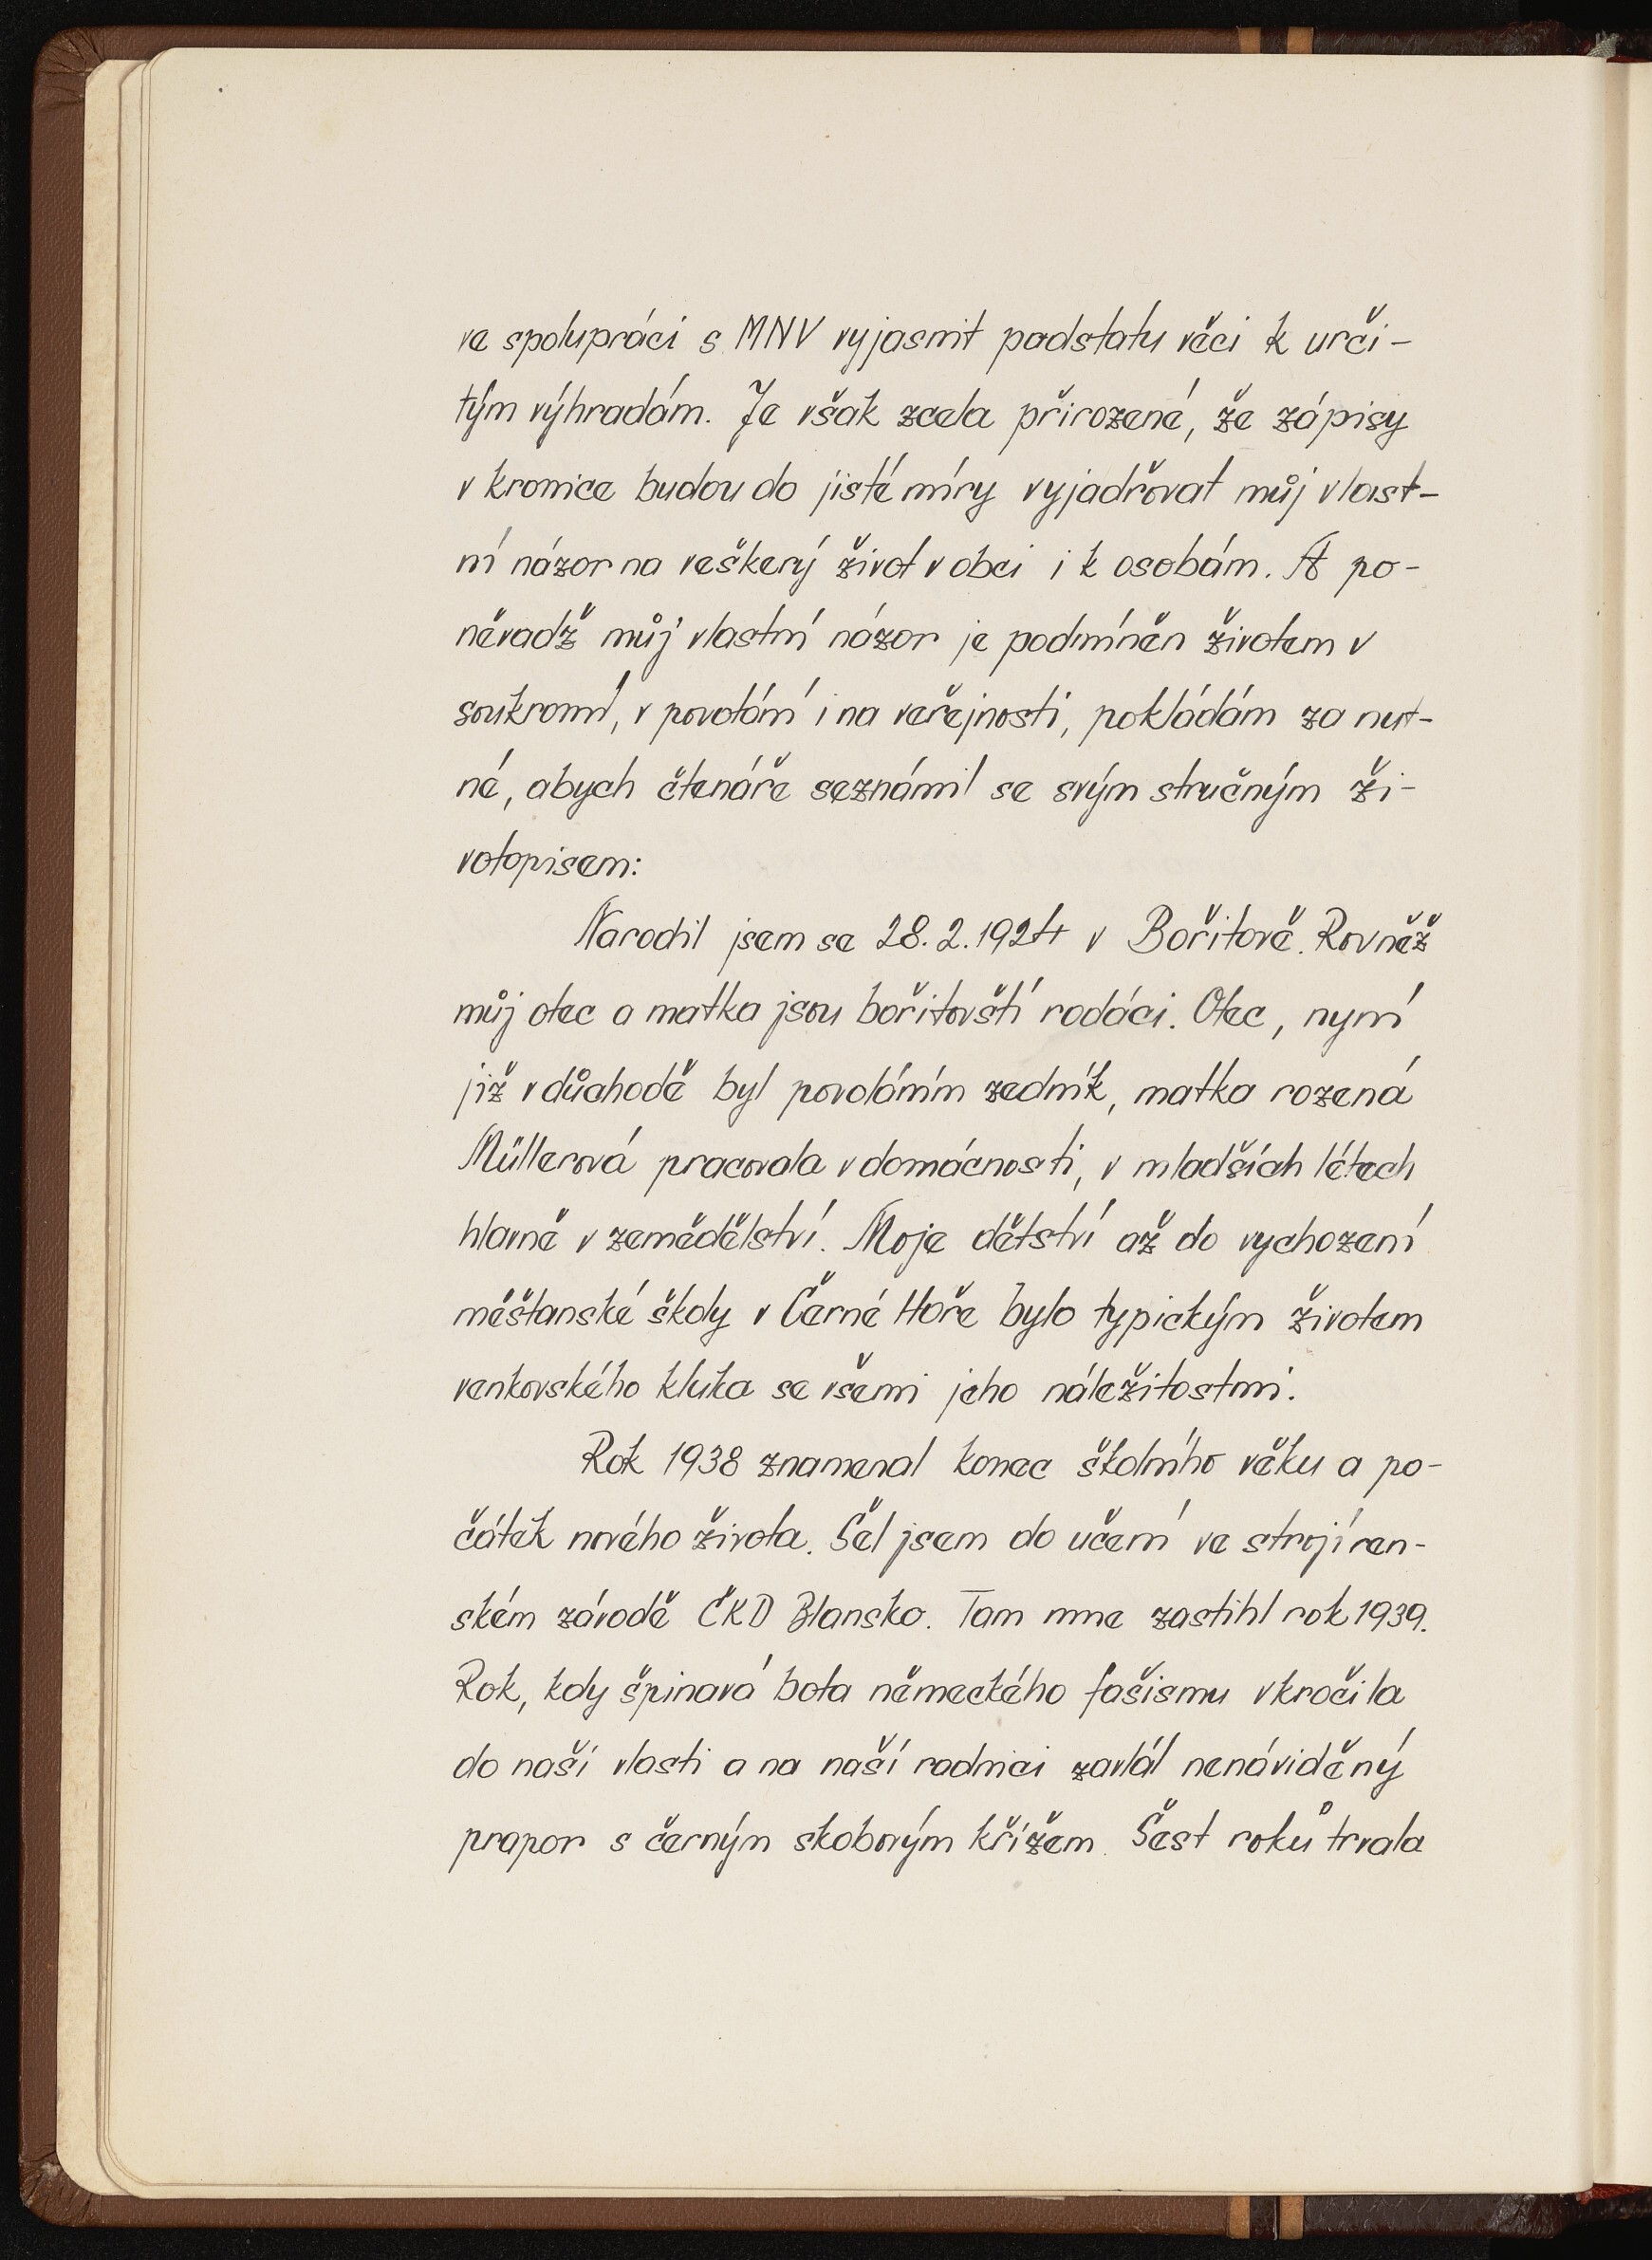 ve spolupráci s MNV vyjasnit podstatu věci k urči-
tým výhradám. Je však zcela přirozené, že zápisy
v kronice budou do jisté míry vyjadřovat můj vlast-
ní názor na veškerý život v obci i k osobám. A po-
něvadž můj vlastní názor je podmíněn životem v
soukromí, v povolání i na veřejnosti, pokládám za nut-
né, abych čtenáře seznámil se svým stručným ži-
votopisem:
Narodil jsem se 28. 2. 1924 v Bořitově. Rovněž
můj otec a matka jsou bořitovští rodáci. Otec, nyní
již v důchodě byl povoláním zedník, matka rozená
Müllerová pracovala v domácnosti, v mladších létech
hlavně v zemědělství. Moje dětství až do vychození
měšťanské školy v Černé Hoře bylo typickým životem
venkovského kluka se všemi jeho náležitostmi.
Rok 1938 znamenal konec školního věku a po-
čátek nového života. Šel jsem do učení ve strojíren-
ském závodě ČKD Blansko. Tam mne zastihl rok 1939.
Rok, kdy špinavá bota německého fašismu vkročila
do naší vlasti a na naší radnici zavlál nenáviděný
prapor s černým skobovým křížem. Šest roků trvala